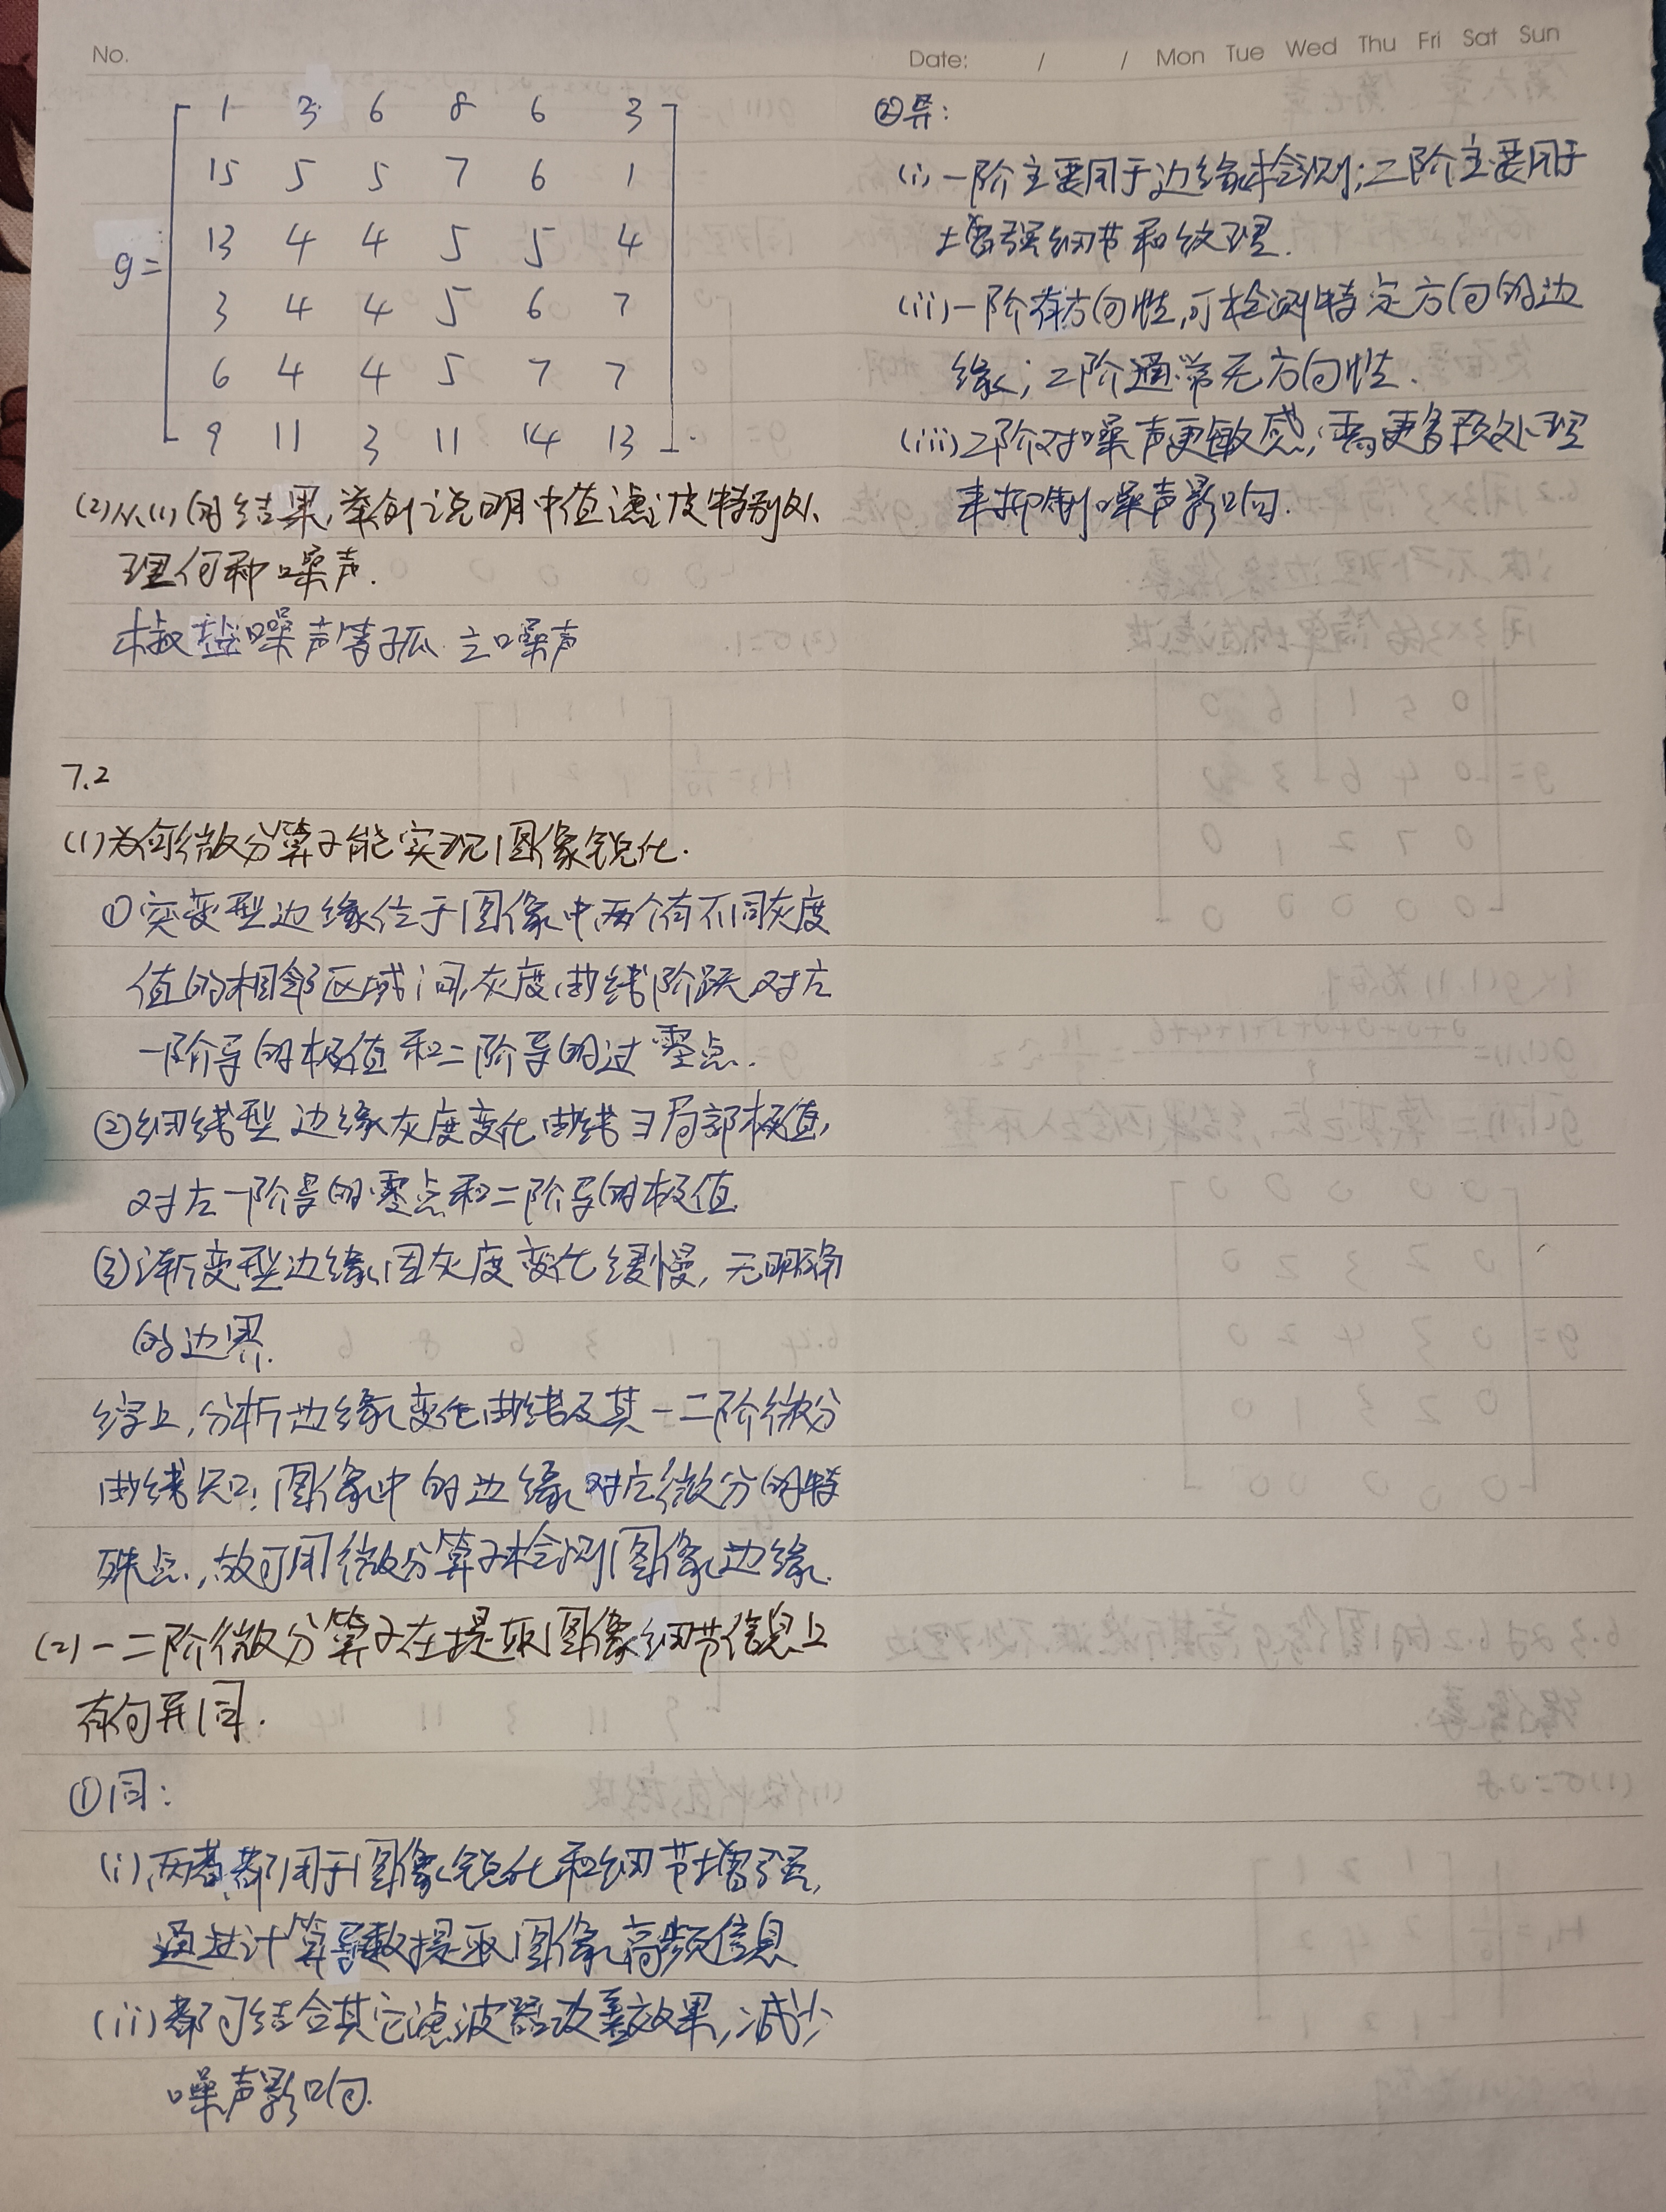 No.
Date: / / Mon Tue Wed Thu Fri Sat Sun
1 3 6 8 6 3
15 5 5 7 6 1
13 4 4 5 5 4
g=
3 4 4 5 6 7
6 4 4 5 7 7
9 11 3 11 14 13
(2)从(1)的结果,举例说明中值滤波特别处
理何种噪声.
椒盐噪声等孤立噪声
7.2
(1)为何微分算子能实现图像锐化.
①突变型边缘位于图像中两个有不同灰度
值的相邻区域间,灰度曲线阶跃对应
一阶导的极值和二阶导的过零点.
②细线型边缘灰度变化曲线∃局部极值,
对应一阶导的零点和二阶导的极值.
③渐变型边缘,因灰度变化缓慢,无明确
的边界.
综上,分析边缘变化曲线及其一二阶微分
曲线知:图像中的边缘对应微分的特
殊点,故可用微分算子检测图像边缘.
(2)一二阶微分算子在提取图像细节信息上
有何异同.
①同:
(i)两者都用于图像锐化和细节增强,
通过计算导数提取图像高频信息.
(ii)都可结合其它滤波器改善效果,减少
噪声影响.
②异:
(i)一阶主要用于边缘检测;二阶主要用于
增强细节和纹理.
(ii)一阶有方向性,可检测特定方向的边
缘;二阶通常无方向性.
(iii)二阶对噪声更敏感,需更多预处理
来抑制噪声影响.